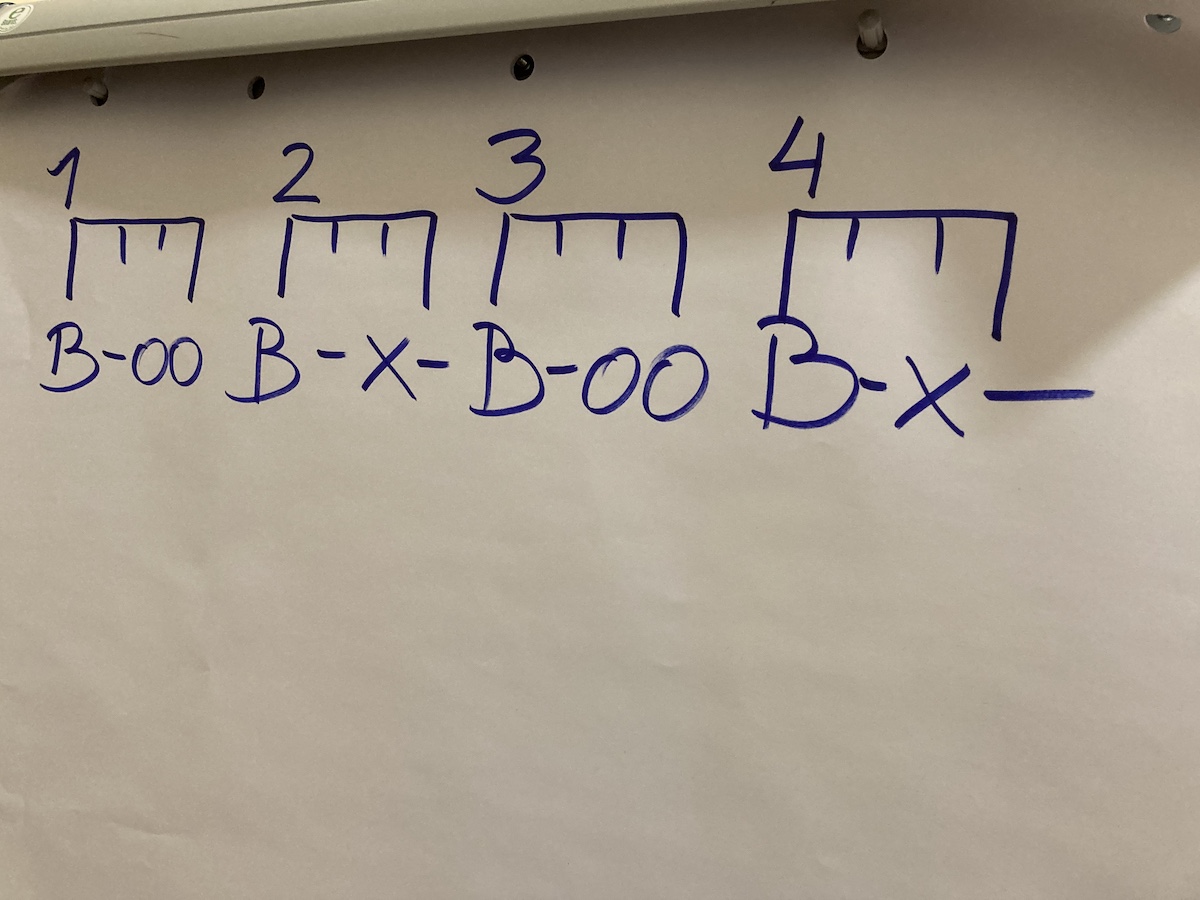 1 2 3 4
B-OO B-X- B-OO B-X-